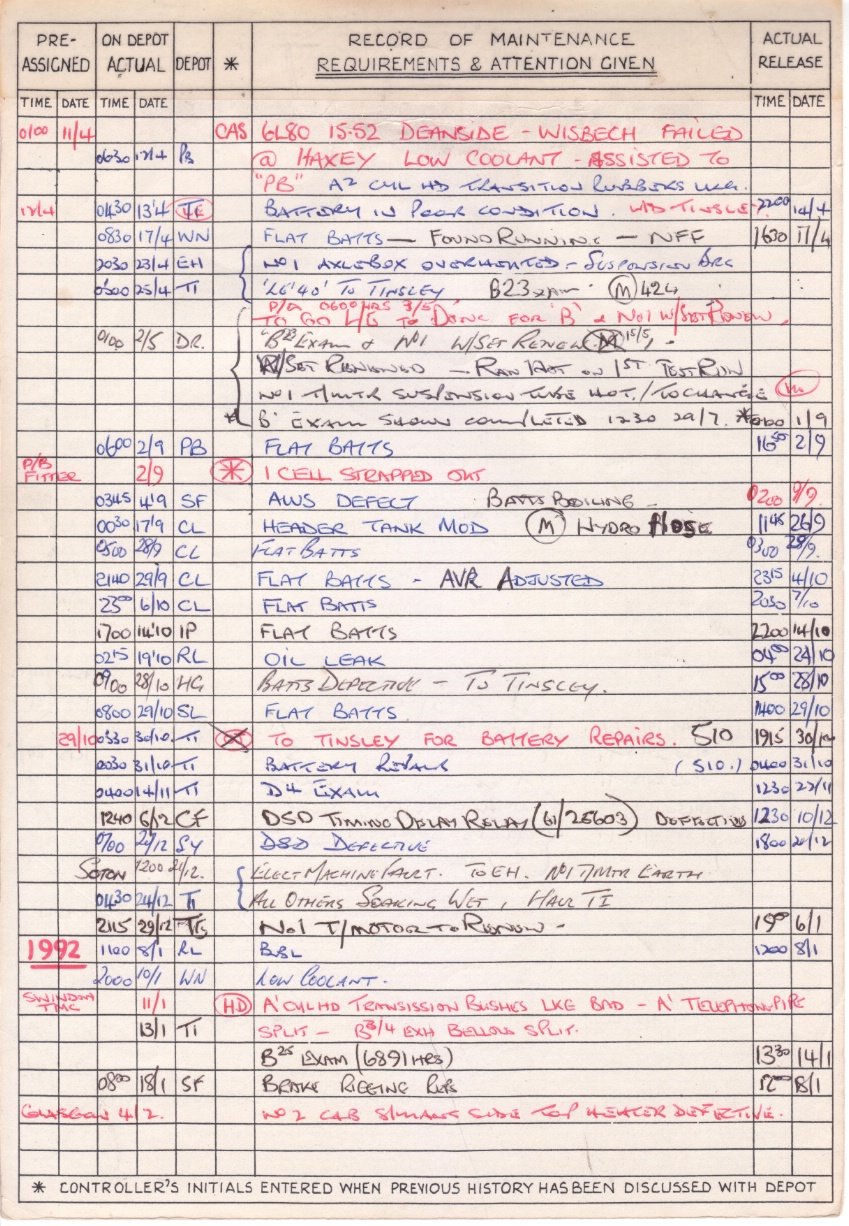 PRE- ON DEPOT RECORD OF MAINTENANCE ACTUAL
ASSIGNED ACTUAL DEPOT * REQUIREMENTS & ATTENTION GIVEN RELEASE
TIME DATE TIME DATE TIME DATE
0100 11/4 CAS 6L80 15·52 DEANSIDE - WISBECH FAILED
0630 12/4 PB @ HAXEY LOW COOLANT - ASSISTED TO
"PB" A2 CYL HD TRANSITION RUBBERS LKG.
12/4 0430 13/4 TI BATTERY IN POOR CONDITION. TINSLEY. 2200 14/4
0830 17/4 WN FLAT BATTS — FOUND RUNNING — NFF 1630 17/4
2030 23/4 EH NO1 AXLEBOX OVERHEATED - SUSPENSION BRG
0500 25/4 TI TO TINSLEY B23 EXAM M 424
P/A 0600HRS 3/5
TO GO L/E TO DONC FOR 'B' & NO1 W/SET RENEW.
0100 2/5 DR. EXAM & NO1 W/SET RENEW. M 15/5
W/SET RENEWED - RAN HOT ON 1ST TEST RUN
NO1 T/MTR SUSPENSION TUBE HOT. / TO CHANGE
* 'B' EXAM SHOWN COMPLETED 1230 29/7. * 0100 1/9
0600 2/9 PB FLAT BATTS 1650 2/9
P/B FITTER 2/9 * 1 CELL STRAPPED OUT
0345 4/9 SF AWS DEFECT BATTS BOILING 0200 9/9.
0030 17/9 CL HEADER TANK MOD M HYDRO HOSE 1145 26/9
0500 28/9 CL FLAT BATTS 0300 29/9.
2140 29/9 CL FLAT BATTS - AVR ADJUSTED 2315 4/10
2300 6/10 CL FLAT BATTS 2030 7/10
1700 14/10 IP FLAT BATTS 2200 14/10
0215 19/10 RL OIL LEAK 0400 24/10
0900 28/10 HG BATTS DEFECTIVE - TO TINSLEY. 1500 28/10
0800 29/10 SL FLAT BATTS. 1400 29/10
29/10 0330 30/10 TI TO TINSLEY FOR BATTERY REPAIRS. 510 1915 30/10
0030 31/10 TI BATTERY REPAIRS (510.) 0400 31/10
0400 14/11 TI D4 EXAM 1230 22/11
1240 6/12 CF DSD TIMING DELAY RELAY (61/25603) DEFECTIVE 1230 10/12
0700 20/12 SY DSD DEFECTIVE 1800 20/12
SOTON 1200 21/12. ELECT MACHINE FAULT. TO EH. NO1 T/MTR EARTH
0430 24/12 TI ALL OTHERS SOAKING WET, HAUL TI
2115 29/12 NO1 T/MOTOR TO RENEW - 1500 6/1
1992 1100 8/1 RL BBL 1200 8/1
2000 10/1 WN LOW COOLANT.
SWINDON TMC 11/1 HD A' CYL HD TRANSISSION BUSHES LKG BAD - A' TELEPHONE PIPE
13/1 TI SPLIT - B3/4 EXH BELLOWS SPLIT.
B25 EXAM (6891 HRS) 1330 14/1
0800 18/1 SF BRAKE RIGGING REPS 1200 18/1
GLASGOW 4/2. NO 2 CAB S/MANS SIDE TOP HEATER DEFECTIVE.
* CONTROLLER'S INITIALS ENTERED WHEN PREVIOUS HISTORY HAS BEEN DISCUSSED WITH DEPOT